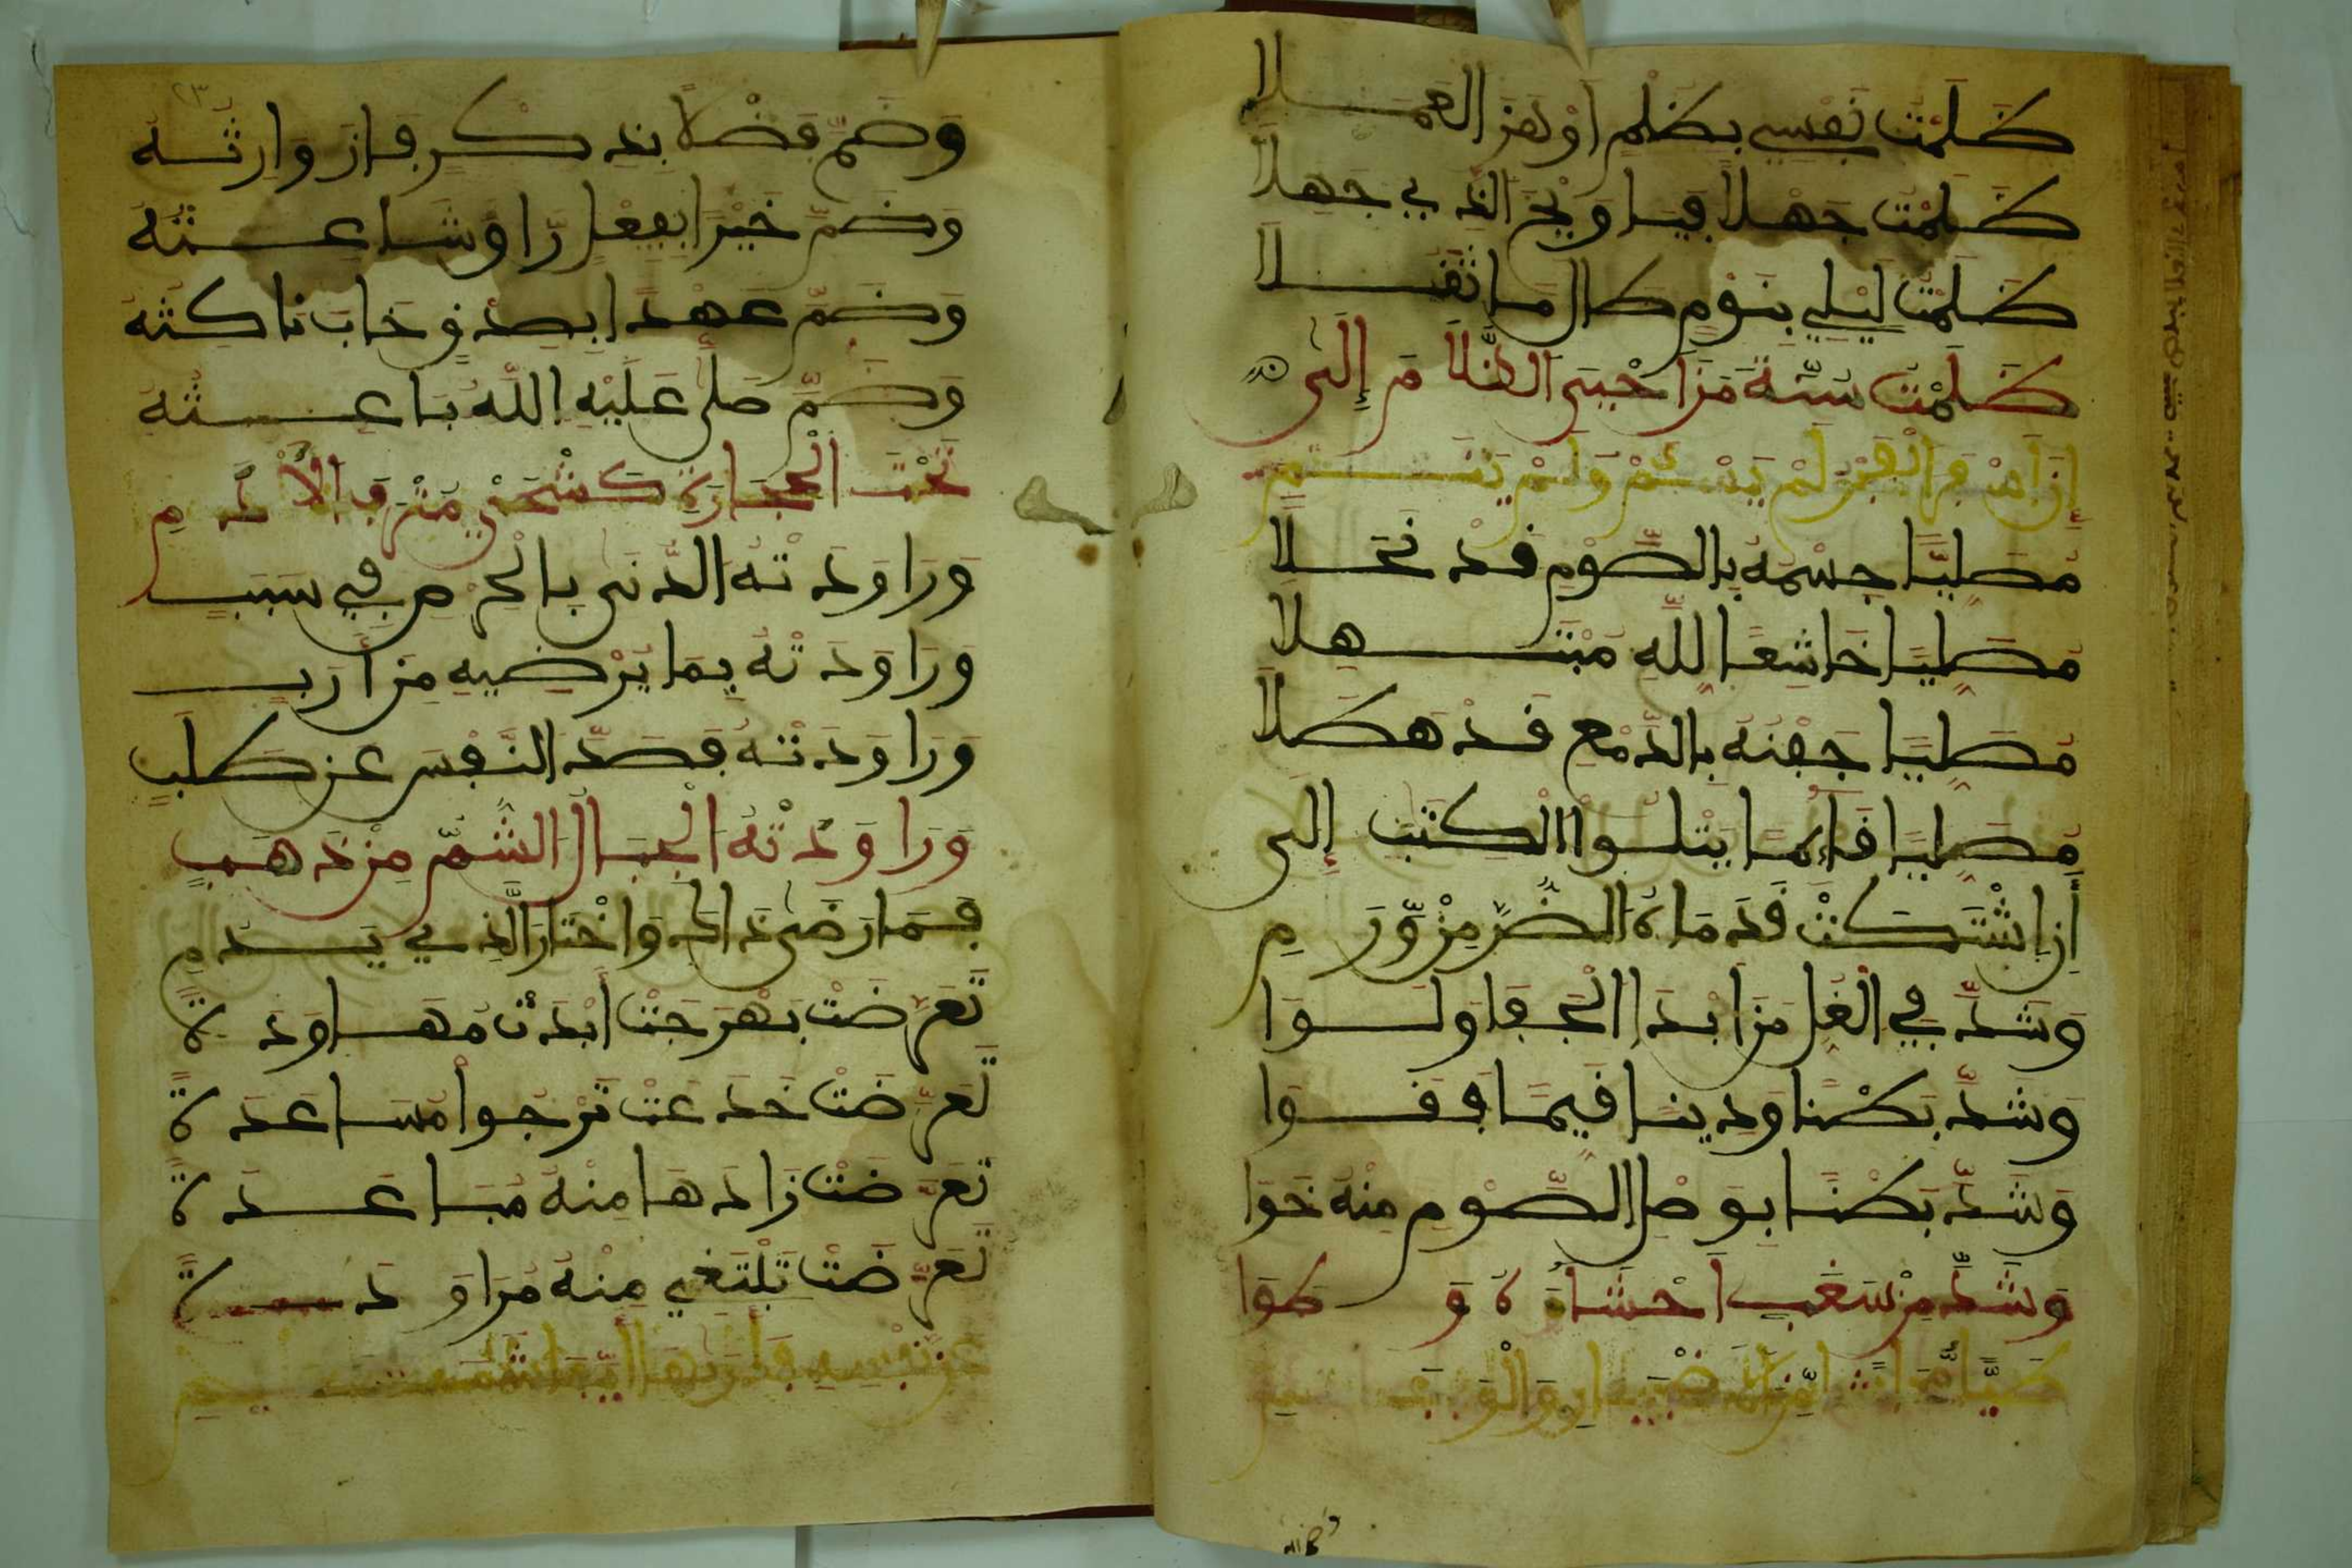 ظَلَمْتُ نَفْسِي بِظُلْمٍ أَوْهَنَ الْعَمَلَا
ظَلَمْتُ جَهْلًا فَيَا وَيْحَ الَّذِي جَهِلَا
ظَلَمْتُ لَيْلِي بِنَوْمٍ طَالَ مَا ثَقُلَا
ظَلَمْتُ سُنَّةَ مَنْ أَحْيَى الظَّلَامَ إِلَى
مُصَلِّيًا جِسْمُهُ بِالصَّوْمِ قَدْ نَحَلَا
مُصَلِّيًا خَاشِعًا لِلَّهِ مُبْتَهِلَا
مُصَلِّيًا جَفْنُهُ بِالدَّمْعِ قَدْ هَطَلَا
مُصَلِّيًا قَائِمًا يَتْلُوا الْكِتَبَ إِلَى
أَنِ اشْتَكَتْ قَدَمَاهُ الضُّرَّ مِنْ وَّرَمِ
وَشَدَّ فِي الْغُلِّ مَنْ أَبْدَا الْجَفَا وَلَوَا
وَشَدَّ بَطْنًا وَدِينًا فِيمَا
وَشَدَّ بَطْنًا بِوَصْلِ الصَّوْمِ مِنْهُ خَوَا
وَشَدَّ مِنْ سَغَبٍ أَحْشَاءَهُ وَطَوَا
٢٣
وَضَمَّ فَضْلًا بِذِكْرٍ فَازَ وَارِثُهُ
وَضَمَّ خَيْرًا بِفِعْلٍ رَا وَشَاعِثُهُ
وَضَمَّ عَهْدًا بِصِدْقٍ خَابَ نَاكِثُهُ
وَضَمَّ صَلَّى عَلَيْهِ اللَّهُ بَاعِثُهُ
تَحْتَ الْحِجَارَةِ كَشْحَيْ مُتْرَفَ الْأَدَمِ
وَرَاوَدَتْهُ الدُّنَى بِالْحِرْصِ فِي سَبَبِ
وَرَاوَدَتْهُ بِمَا يُرْضِيهِ مِنْ أَرَبِ
وَرَاوَدَتْهُ فَصَدَّ النَّفْسَ عَنْ طَلَبٍ
وَرَاوَدَتْهُ الْجِبَالُ الشُّمُّ مِنْ ذَهَبٍ
فَمَا رَضَى ذَاكَ وَاخْتَارَ الَّذِي
تَعَرَّضَتْ بَهْرَجَتْ أَبْدَتْ مُهَاوَدَةً
تَعَرَّضَتْ خَدَعَتْ تَرْجُوا مُسَاعَدَةً
تَعَرَّضَتْ زَادَهَا مِنْهُ مُبَاعَدَةً
تَعَرَّضَتْ تَبْتَغِي مِنْهُ مُرَاوَدَةً